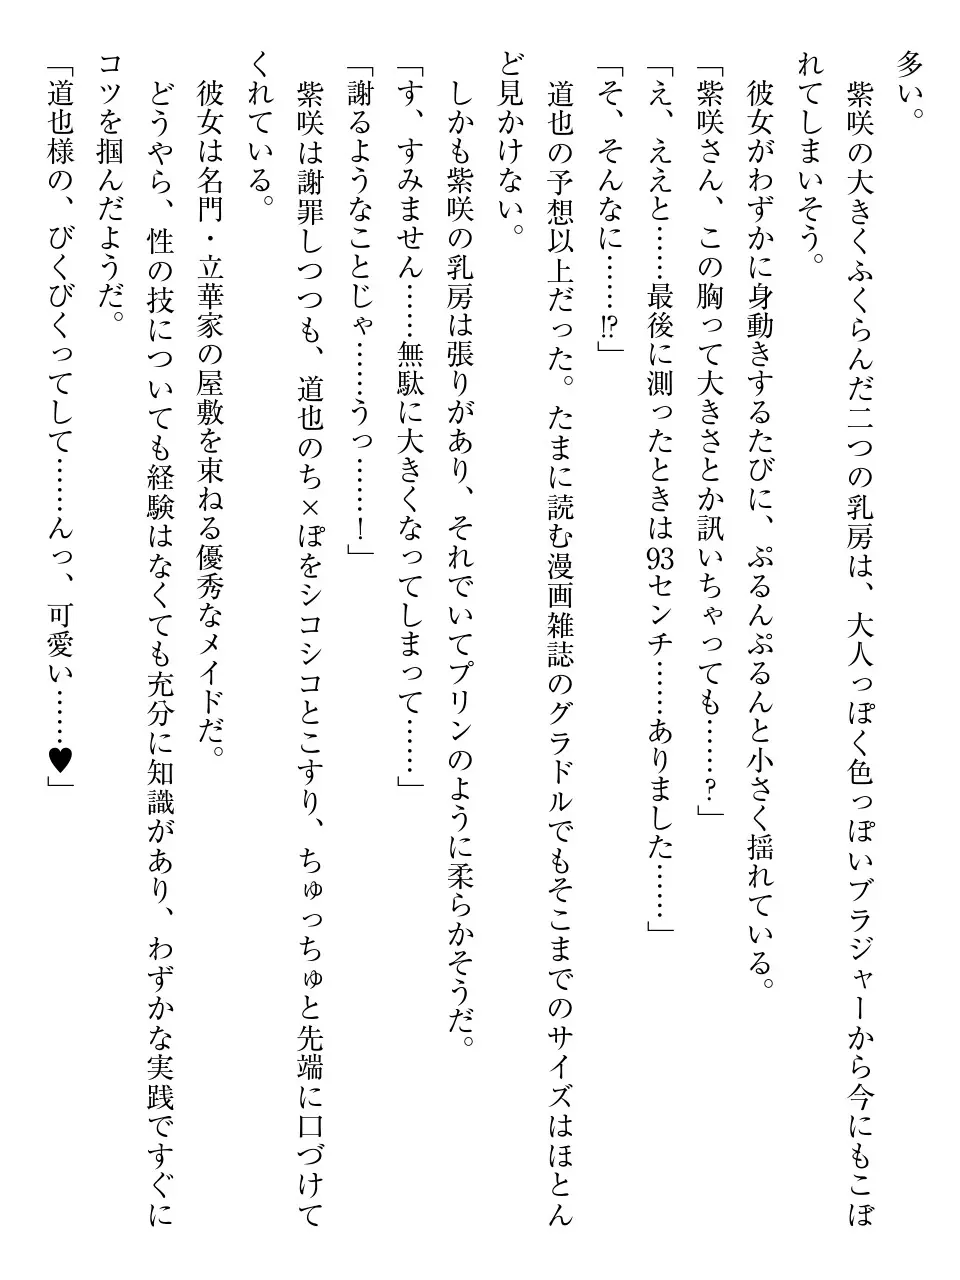 多い。
　紫咲の大きくふくらんだ二つの乳房は、大人っぽく色っぽいブラジャーから今にもこぼ
れてしまいそう。
　彼女がわずかに身動きするたびに、ぷるんぷるんと小さく揺れている。
「紫咲さん、この胸って大きさとか訊いちゃっても……?」
「え、ええと……最後に測ったときは93センチ……ありました……」
「そ、そんなに……!?」
　道也の予想以上だった。たまに読む漫画雑誌のグラドルでもそこまでのサイズはほとん
ど見かけない。
　しかも紫咲の乳房は張りがあり、それでいてプリンのように柔らかそうだ。
「す、すみません……無駄に大きくなってしまって……」
「謝るようなことじゃ……うっ……!」
　紫咲は謝罪しつつも、道也のち×ぽをシコシコとこすり、ちゅっちゅと先端に口づけて
くれている。
　彼女は名門・立華家の屋敷を束ねる優秀なメイドだ。
　どうやら、性の技についても経験はなくても充分に知識があり、わずかな実践ですぐに
コツを掴んだようだ。
「道也様の、びくびくってして……んっ、可愛い……♥」